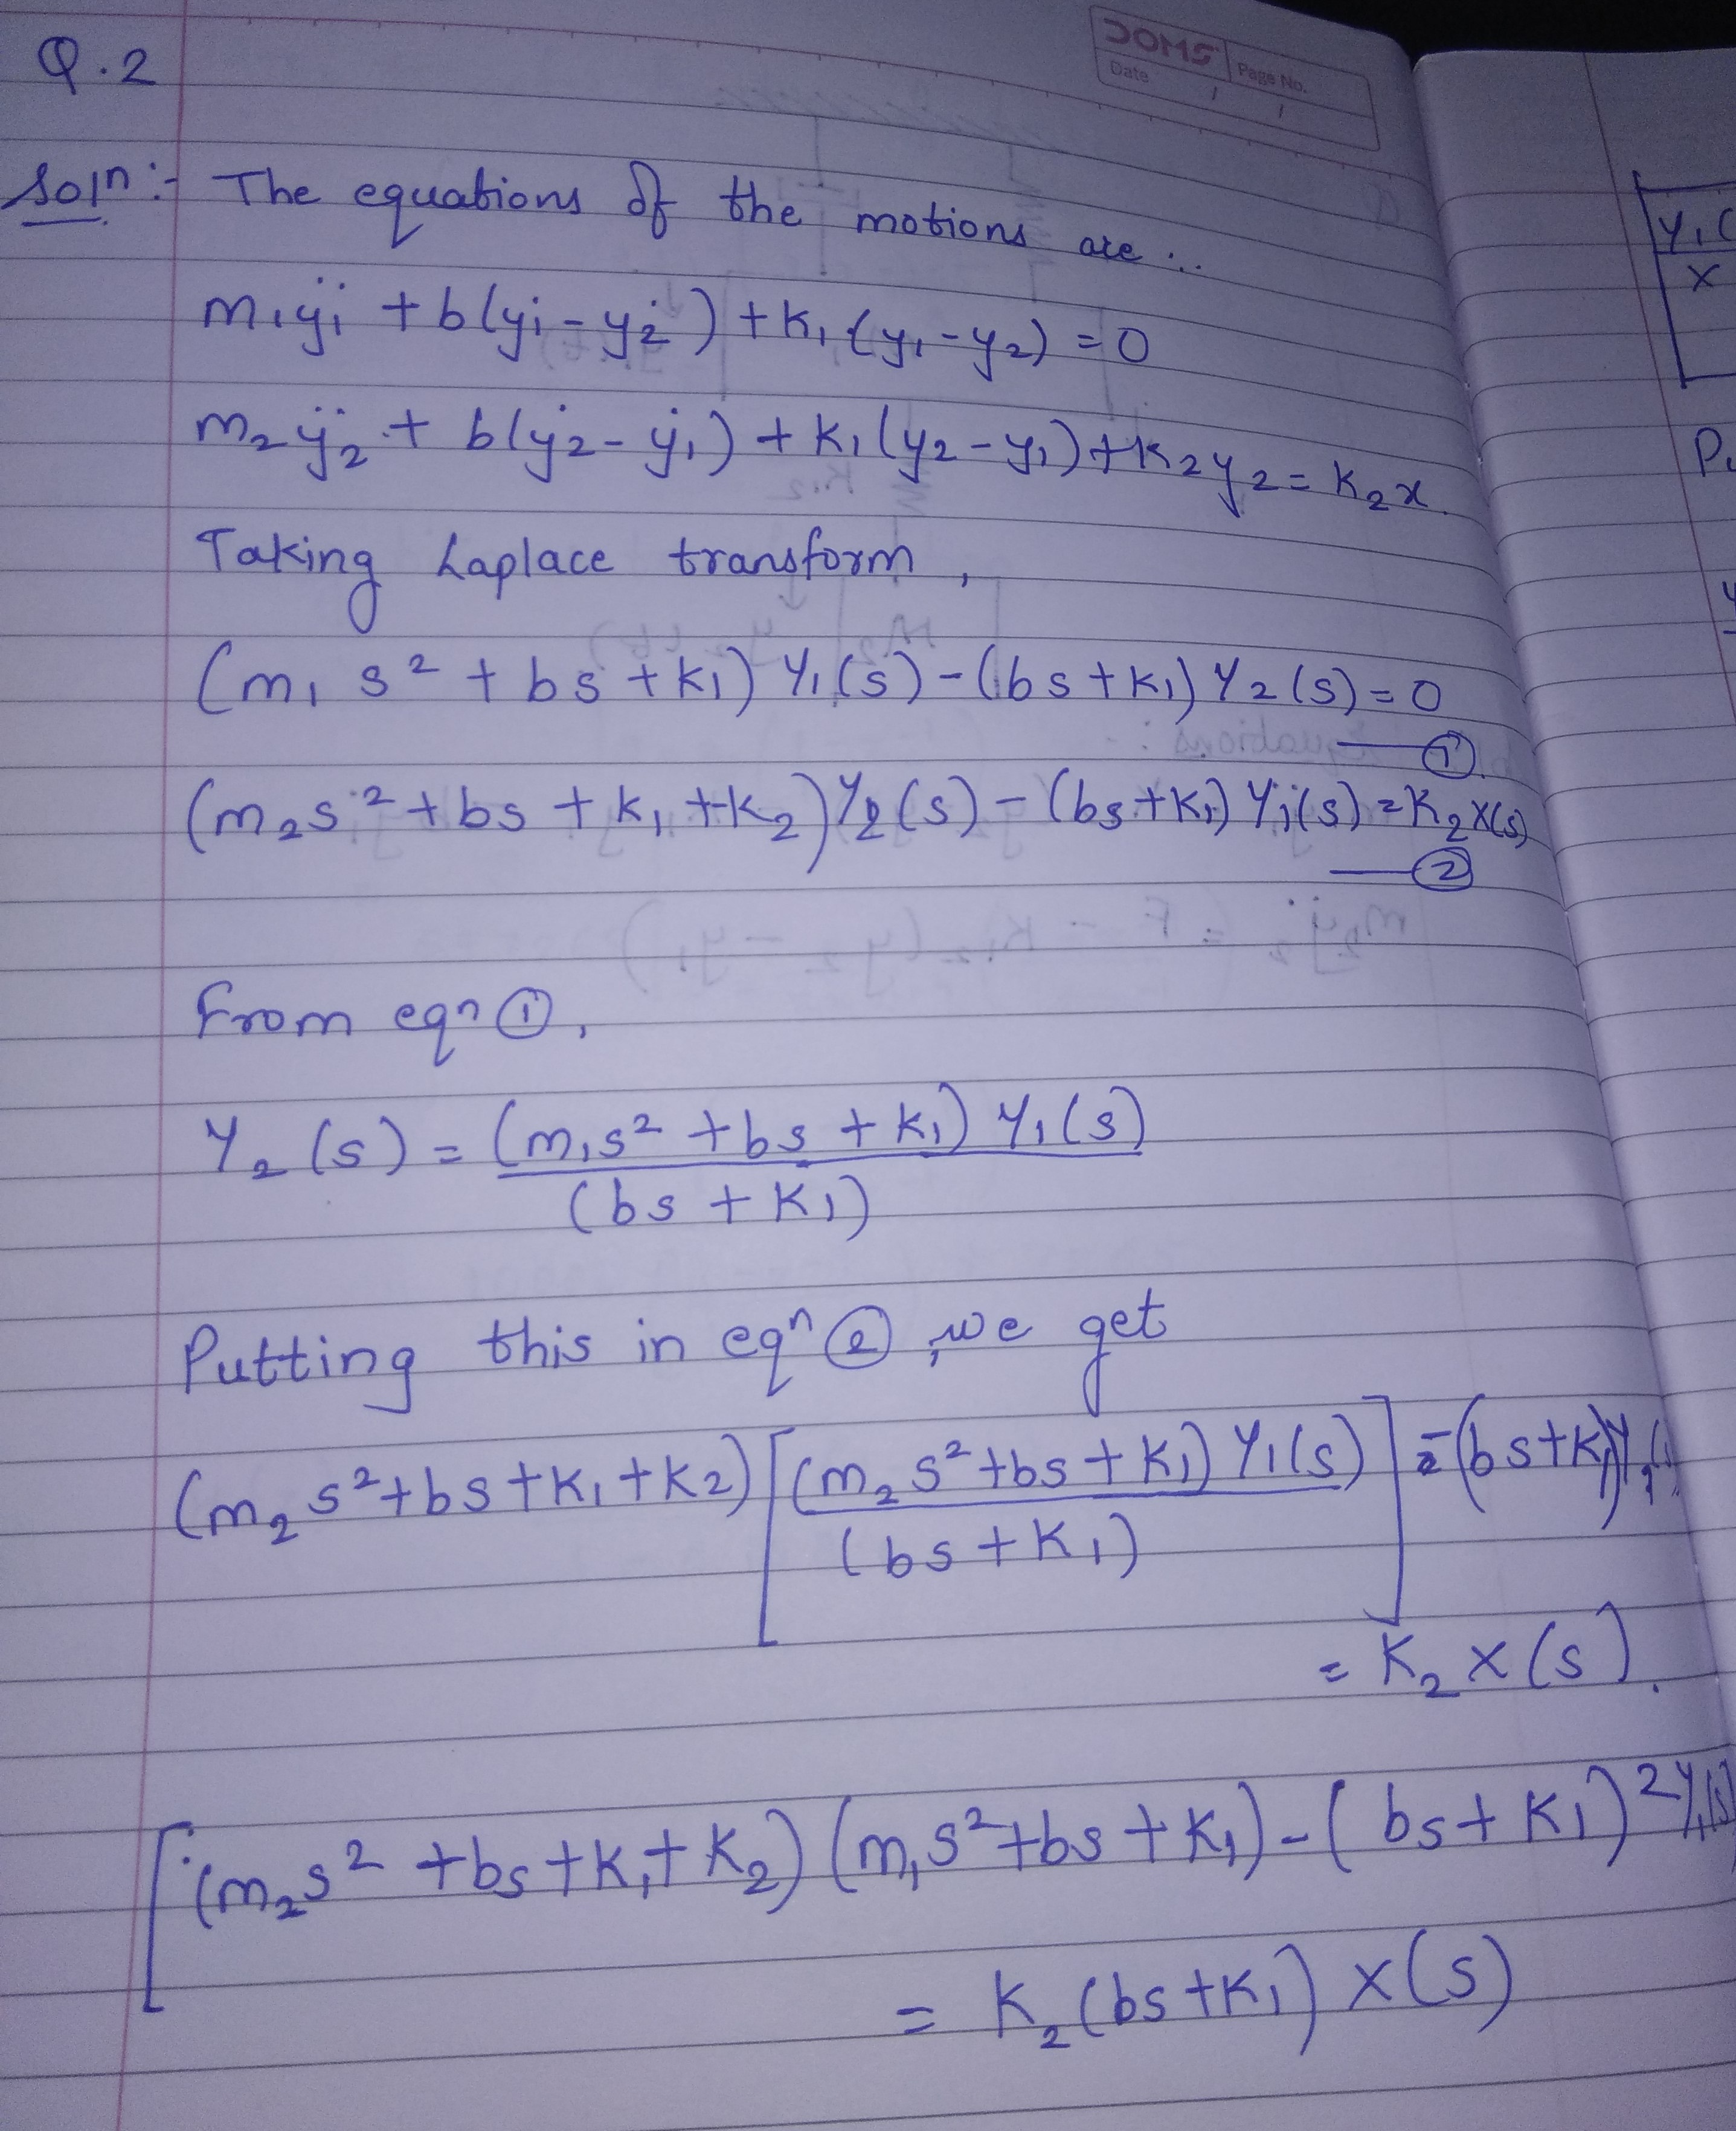 DOMS
Date / / Page No.
Q.2
Soln:- The equations of the motions are...
m₁ÿ₁ + b(ẏ₁ - ẏ₂) + K₁(y₁ - y₂) = 0
m₂ÿ₂ + b(ẏ₂ - ẏ₁) + K₁(y₂ - y₁) + K₂y₂ = K₂x.
Taking Laplace transform,
(m₁ s² + bs + K₁) Y₁(s) - (bs + K₁) Y₂(s) = 0
—①.
(m₂s² + bs + K₁ + K₂) Y₂(s) - (bs + K₁) Y₁(s) = K₂X(s)
—②
From eqn ①,
Y₂(s) = (m₁s² + bs + K₁) Y₁(s)
(bs + K₁)
Putting this in eqⁿ ②, we get
(m₂s² + bs + K₁ + K₂) [(m₂s² + bs + K₁) Y₁(s)] - (bs + K₁) Y₁(
(bs + K₁)
= K₂ X(s).
[(m₂s² + bs + K₁ + K₂) (m₁s² + bs + K₁) - (bs + K₁)² Y₁(s)
= K₂(bs + K₁) X(s)
Y₁(
X